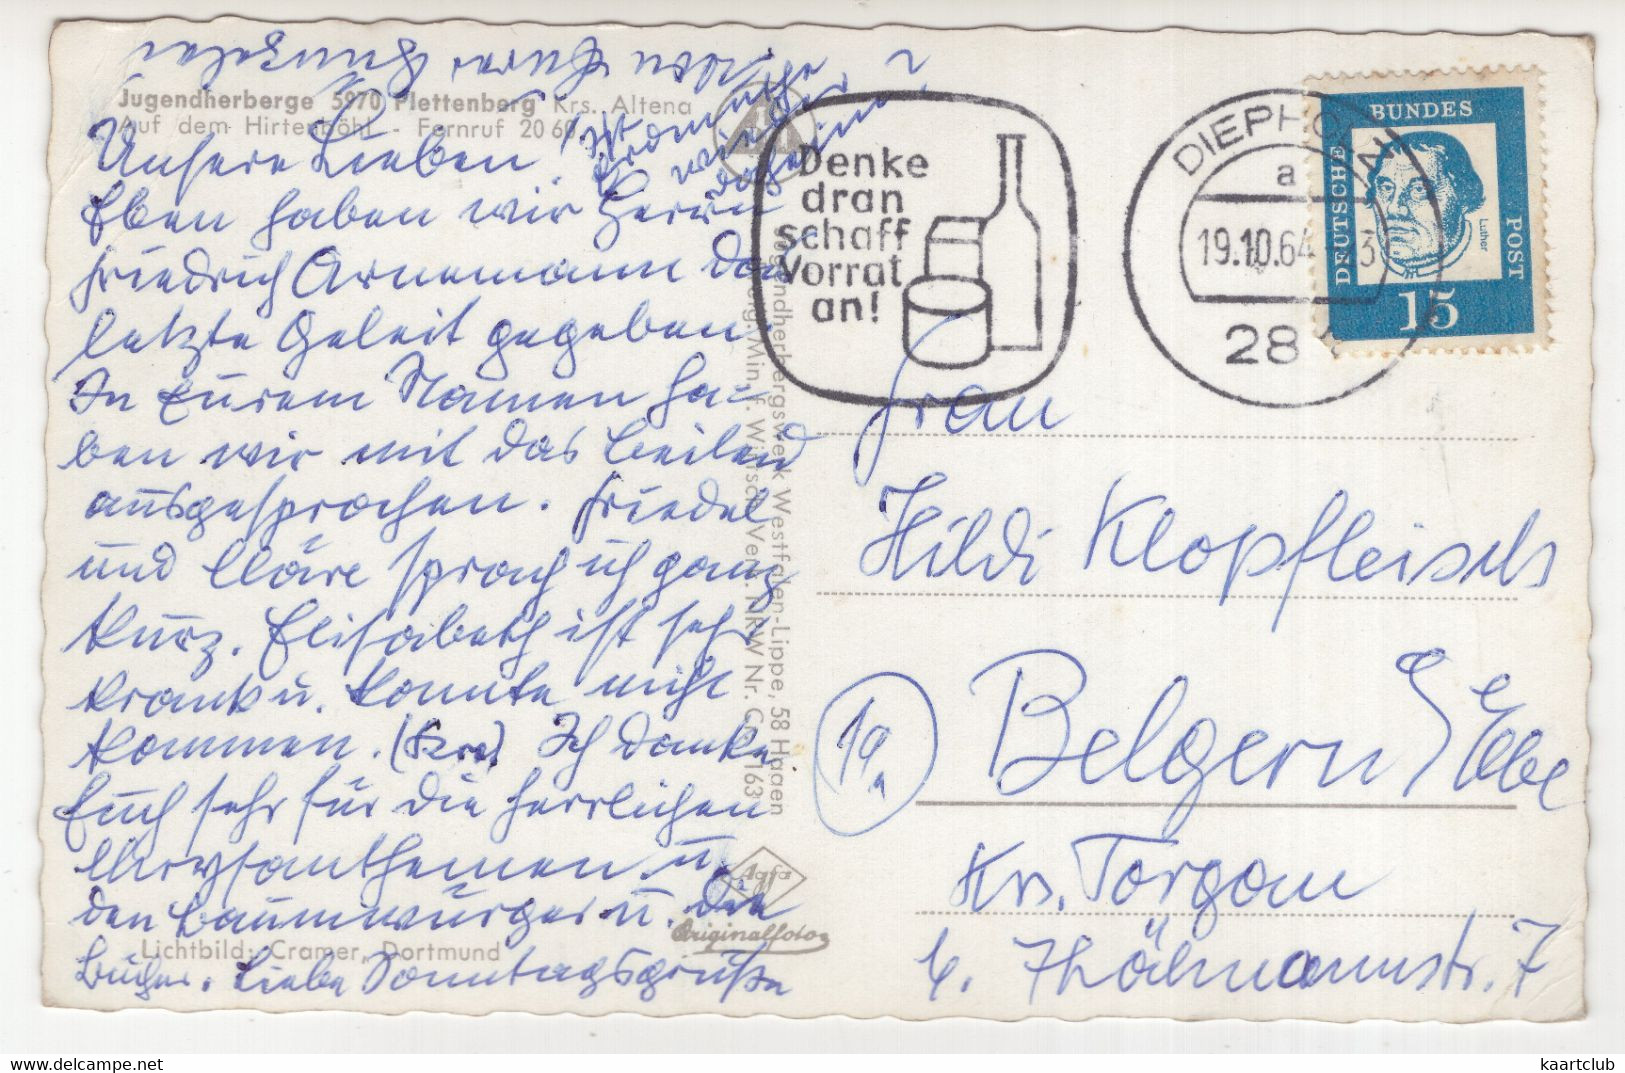 Jugendherberge 5970 Plettenberg Krs. Altena
Auf dem Hirtenböhl - Fernruf 20 60
Unsere Lieben!
Eben haben wir Herrn
Friedrich Arnemann das
letzte Geleit gegeben.
In Eurem Namen ha-
ben wir mit das Beileid
ausgesprochen. Friedel
und Kläre sprach ich ganz
kurz. Elisabeth ist sehr
krank u. konnte nicht
kommen. Ich danke
Euch sehr für die herrlichen
Chrysanthemen u.
den Baumwürger u. die
Bücher. Liebe Sonntagsgrüße
von Eurer
Ist
wieder
daheim?
Lichtbild: Cramer, Dortmund
Jugendherbergswerk Westfalen-Lippe, 58 Hagen
Gen. Min. f. Wirtsch. Verk. NRW Nr.
Agfa
Originalfoto
Denke
dran
schaff
Vorrat
an!
DIEPHOLZ
a
19.10.64
28
DEUTSCHE
BUNDES
POST
Luther
15
Frau
Hildi Klopfleisch
19a
Belgern / Elbe
Krs. Torgau
E. Thälmannstr. 7
kaartclub